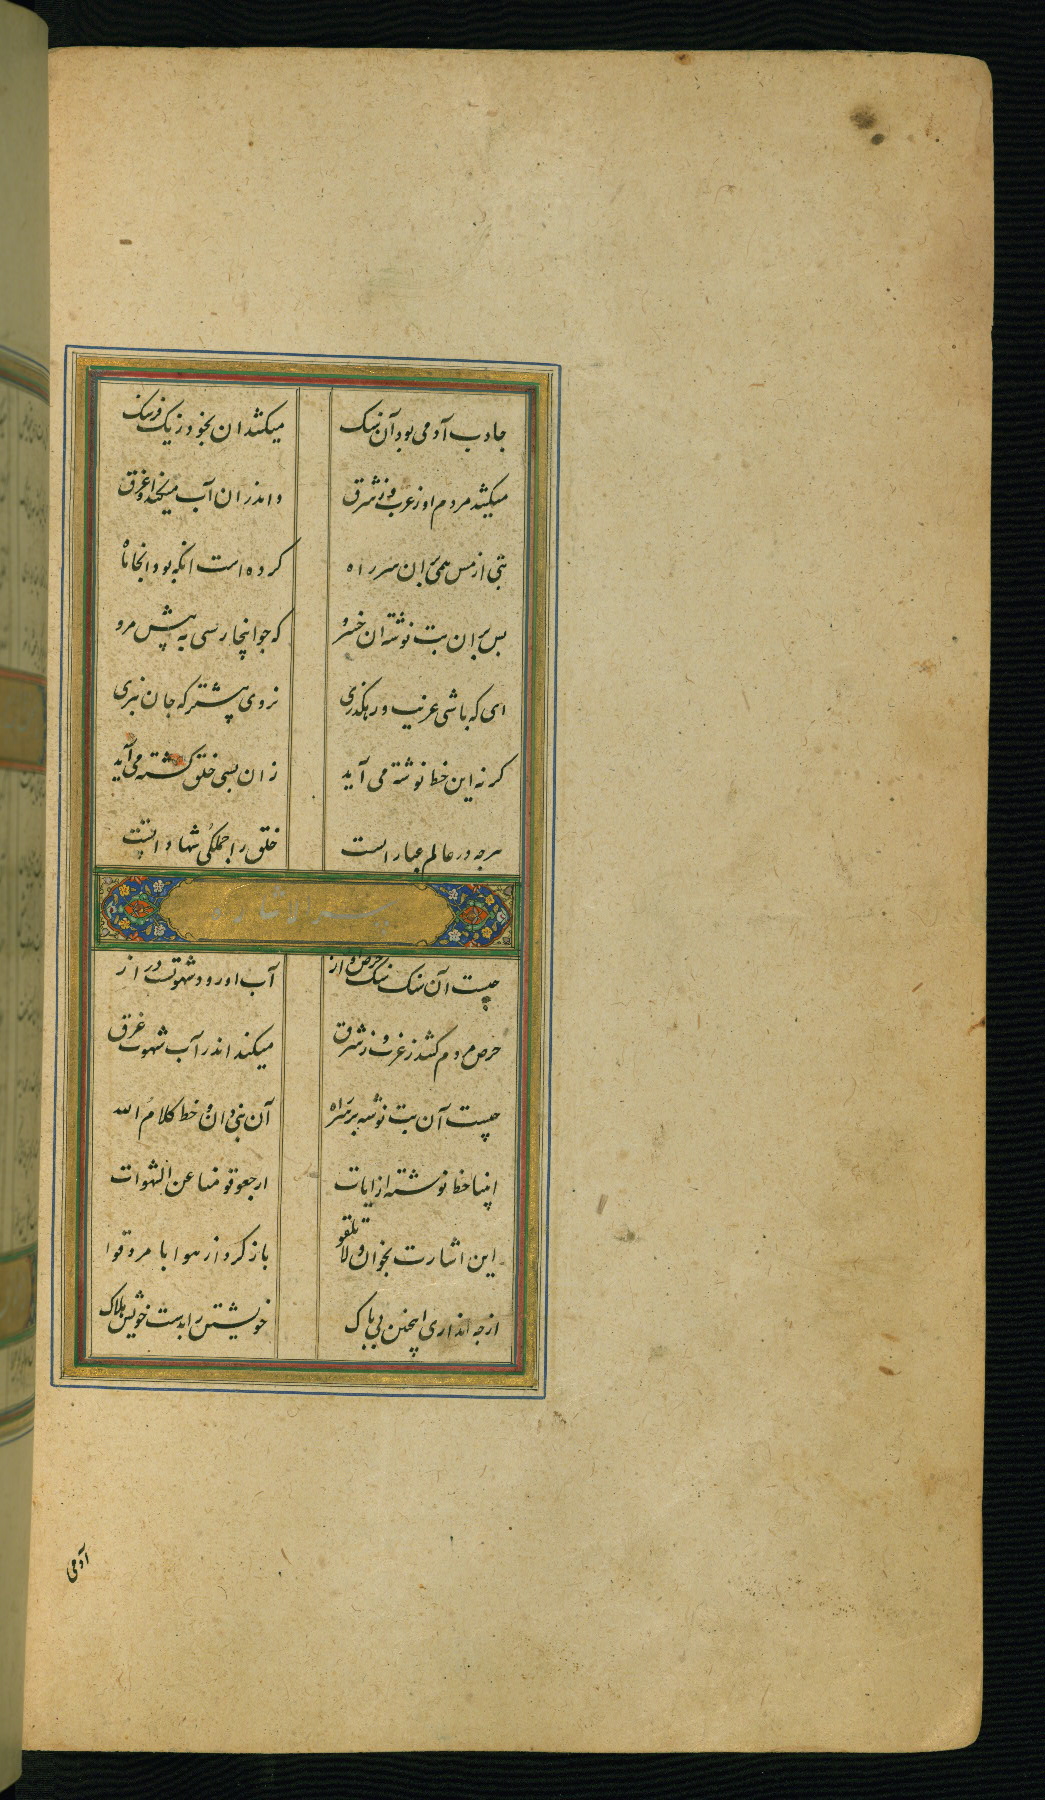 جاذب آدمی بود آن سنک میکشد ان بخود ز یک فرسنک
میکشد مردم او ز غرب و ز شرق و اندر ان آب میکند غرق
بتی از مس همی بر ان سر راه کرده است انکه بود انجا شاه
پس بر ان بت نوشته ان خسرو که چو اینجا رسی به پیش مرو
ای که باشی غریب و رهکذری نروی پیشتر که جان نبری
کر نه این خط نوشته می آید زان بسی خلق کشته می آید
هر چه در عالم عبارا است خلق را جملکی شها دا
سر الاشاره
چیست آن سنک سنک حرص و از آب او رود شهوت دراز
حرص مردم کشد ز غرب و ز شرق میکند اندر آب شهوت غرق
چیست آن بت نوشته بر سر راه آن نبی دان و خط کلام الله
اینا خط نوشته از ایات ارجعو قومنا عن الشهوات
این اشارت بخوان و لا تلقو باز کرد از هوا بامر وقوا
از چه انداری اینچنین بی باک خویشتن را بدست خویش هلاک
آدمی